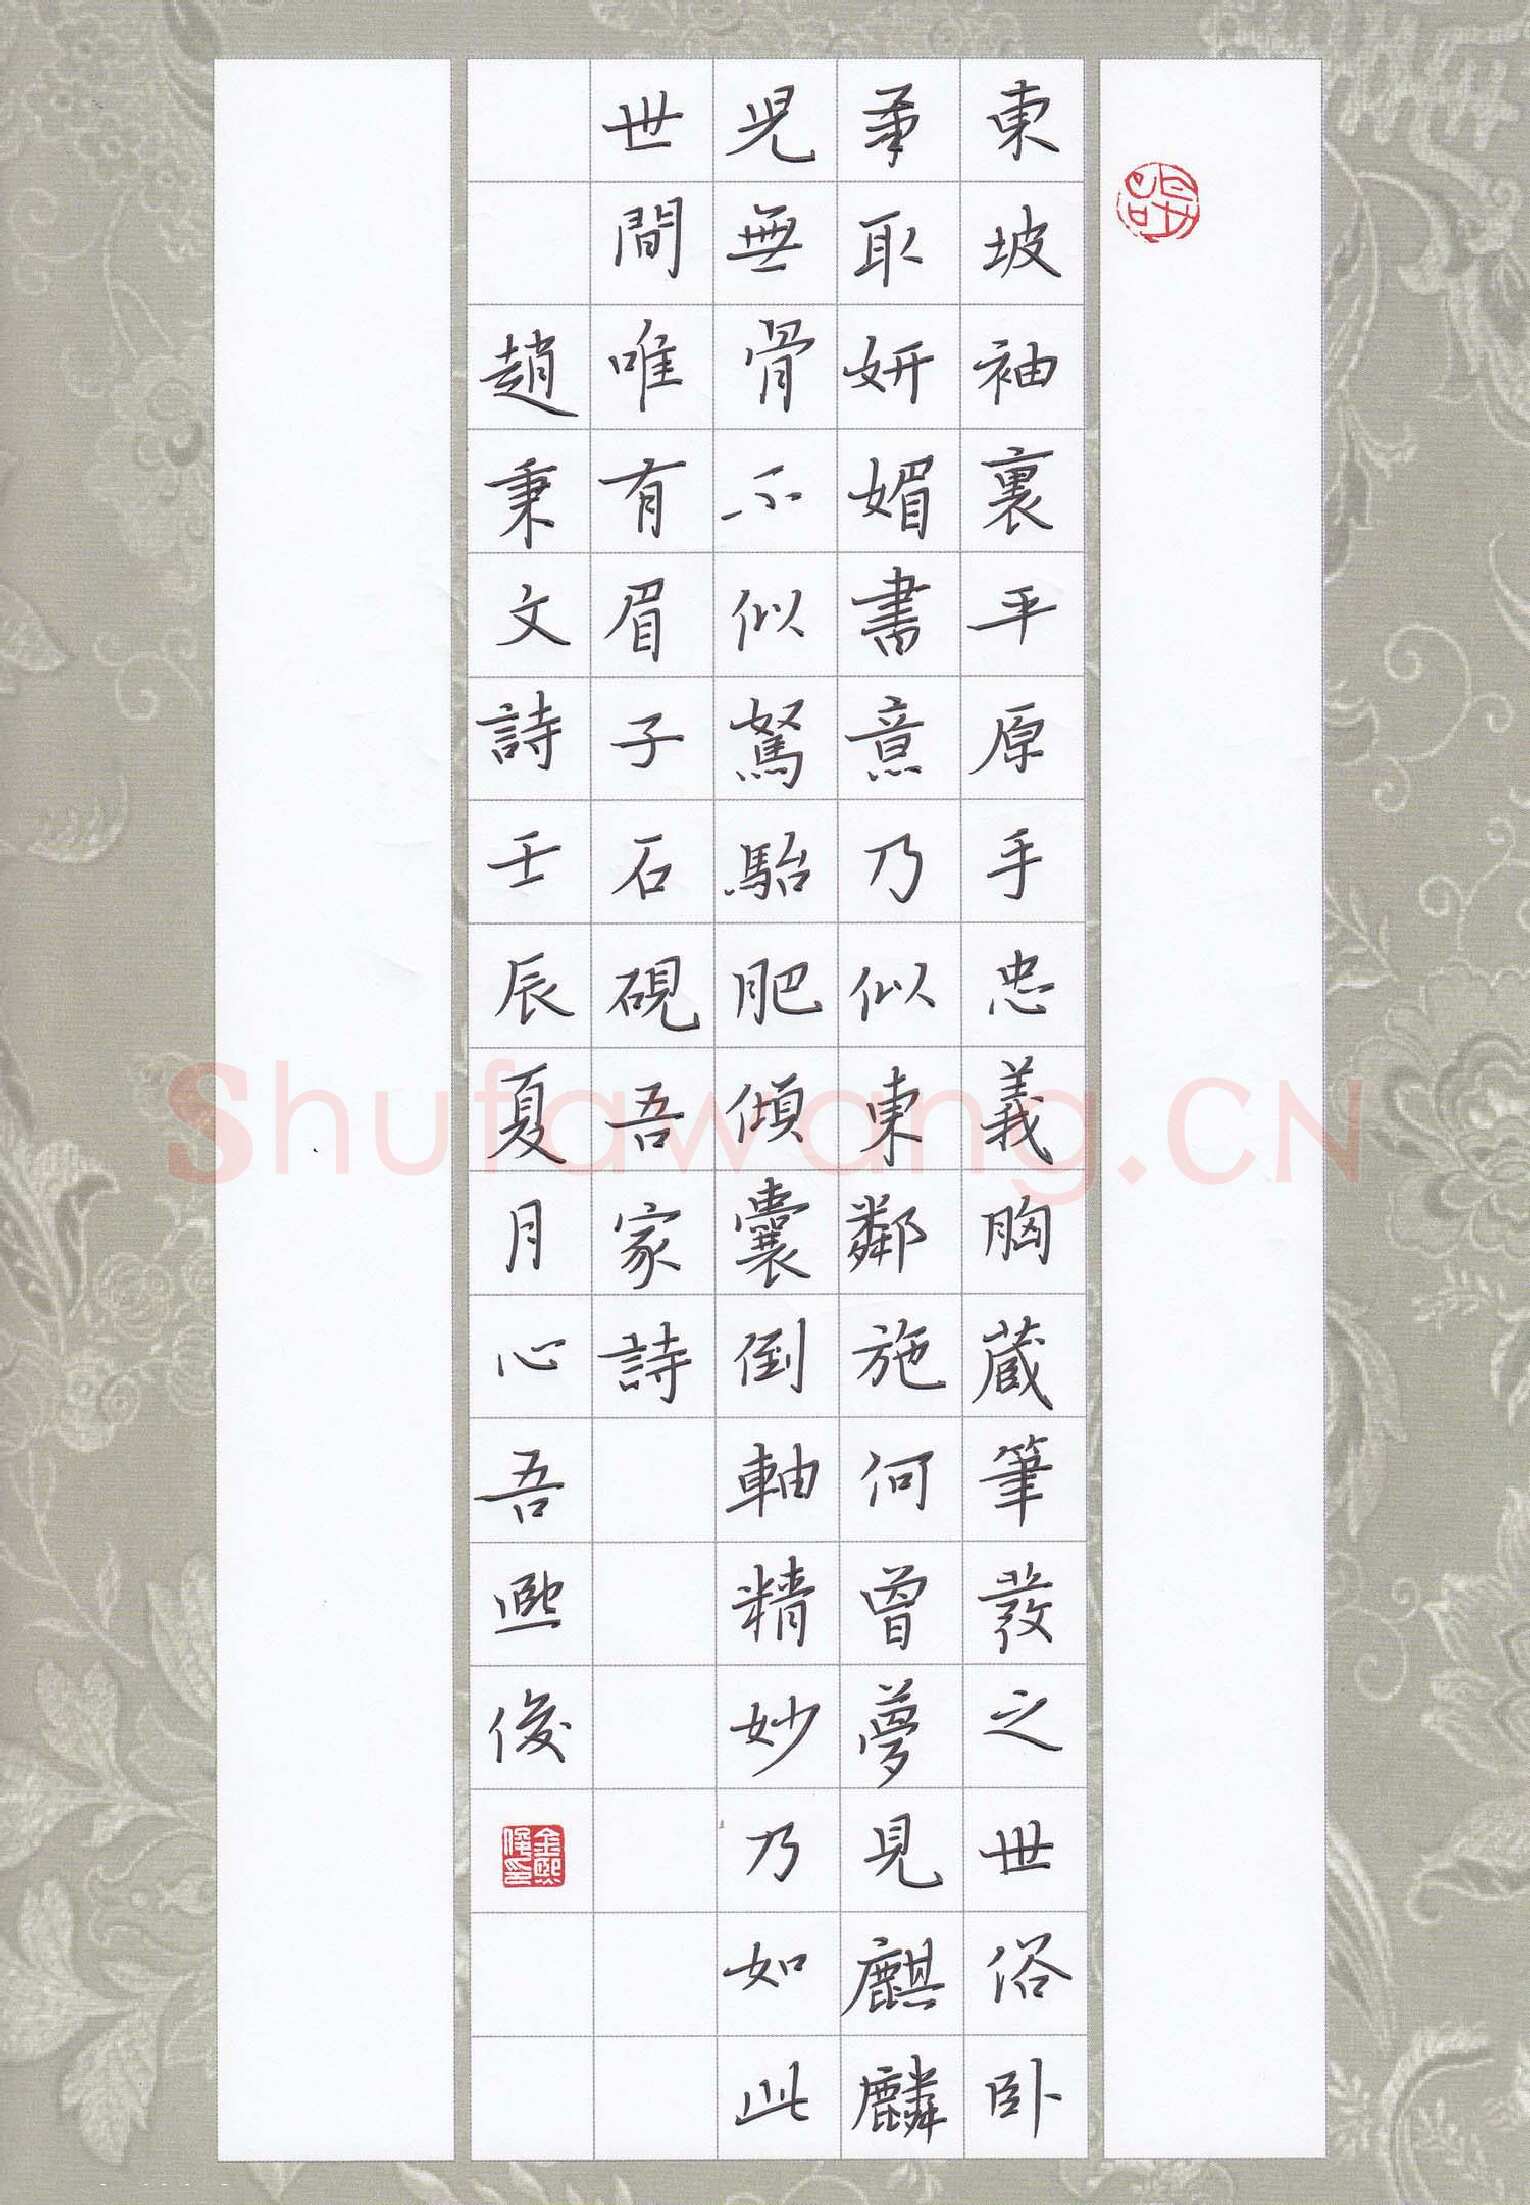 東坡袖裏平原手忠義胸蔵筆發之世俗卧
爭取妍媚書意乃似東鄰施何曾夢見麒麟
児無骨不似駑駘肥傾囊倒軸精妙乃如此
世間唯有眉子石硯吾家詩
趙秉文詩壬辰夏月心吾熙俊
金熙俊印
Shufawang.CN